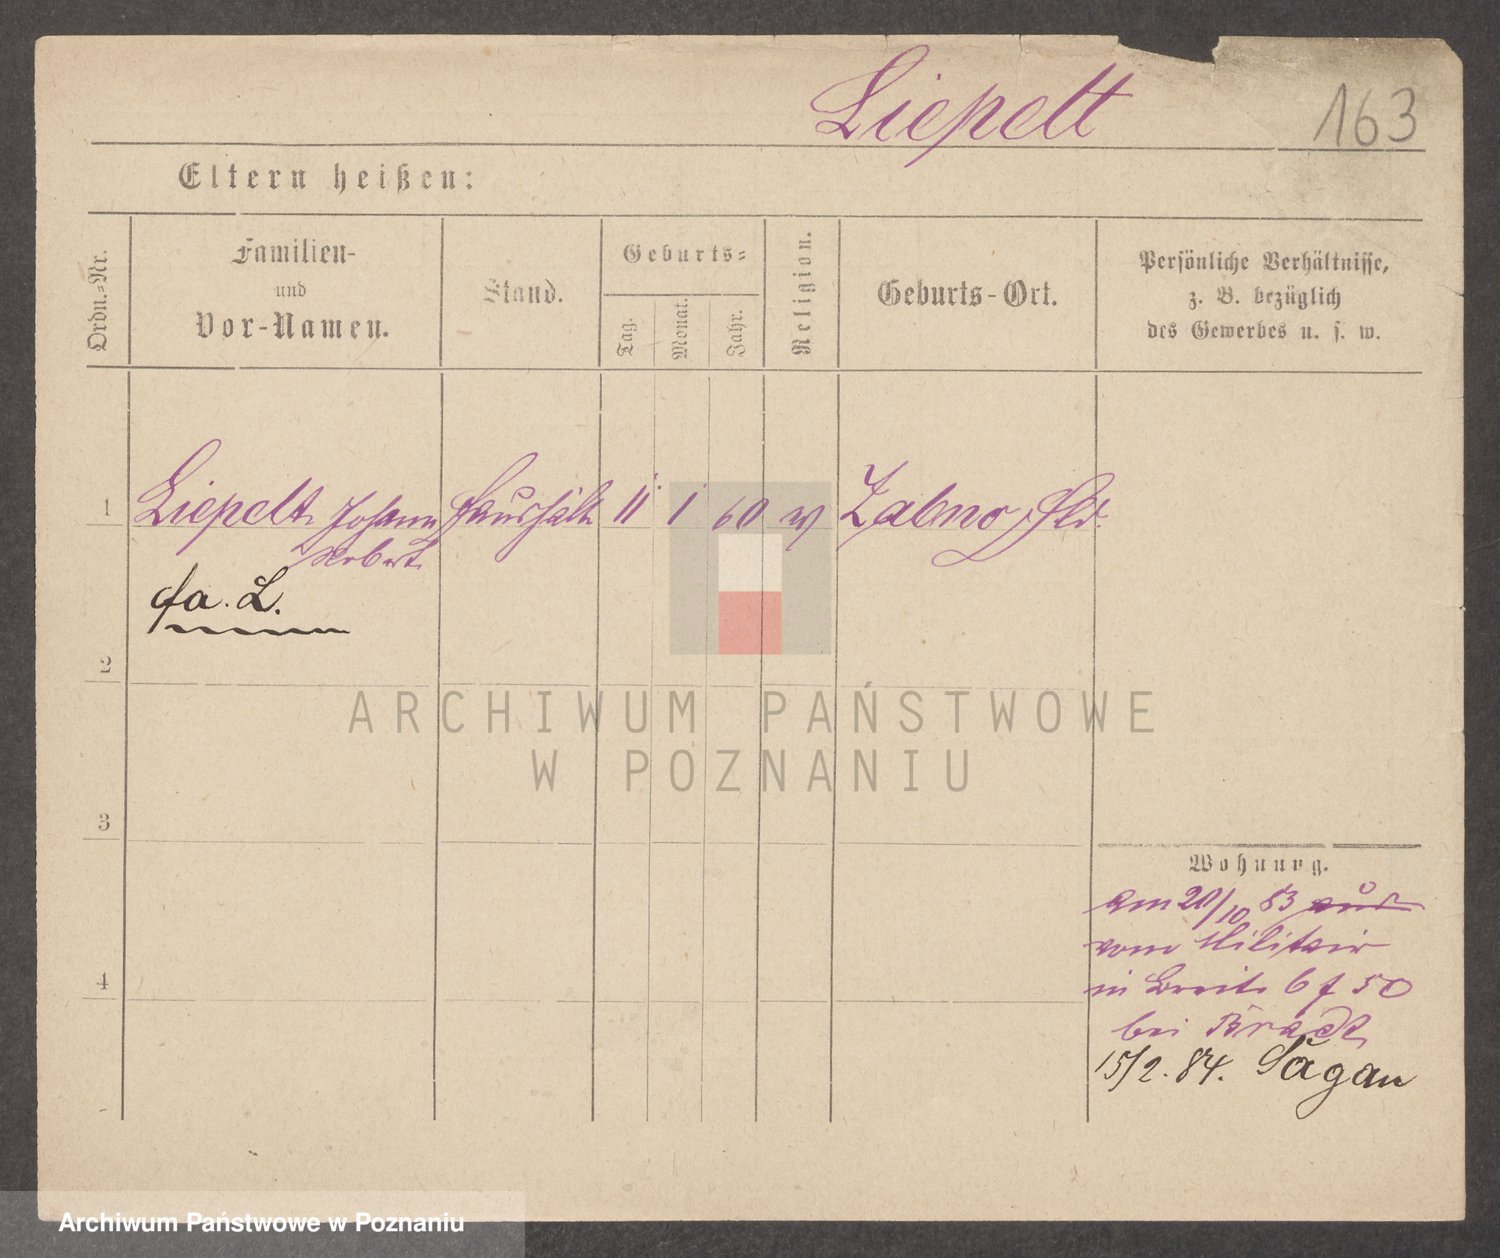 Liepelt
163
Eltern heißen:
Ordn.-Nr.
Familien-
und
Vor-Namen.
Stand.
Geburts-
Tag.
Monat.
Jahr.
Religion.
Geburts-Ort.
Persönliche Verhältnisse,
z. B. bezüglich
des Gewerbes u. s. w.
1 Liepelt Johann Haushält 11 1 60 Zabno
Robert
fa. L.
2
ARCHIWUM PAŃSTWOWE
W POZNANIU
3
Wohnung.
am 20/10 83
vom Militair
in Breite 50
bei
4
15/2. 84. Sagan
Archiwum Państwowe w Poznaniu